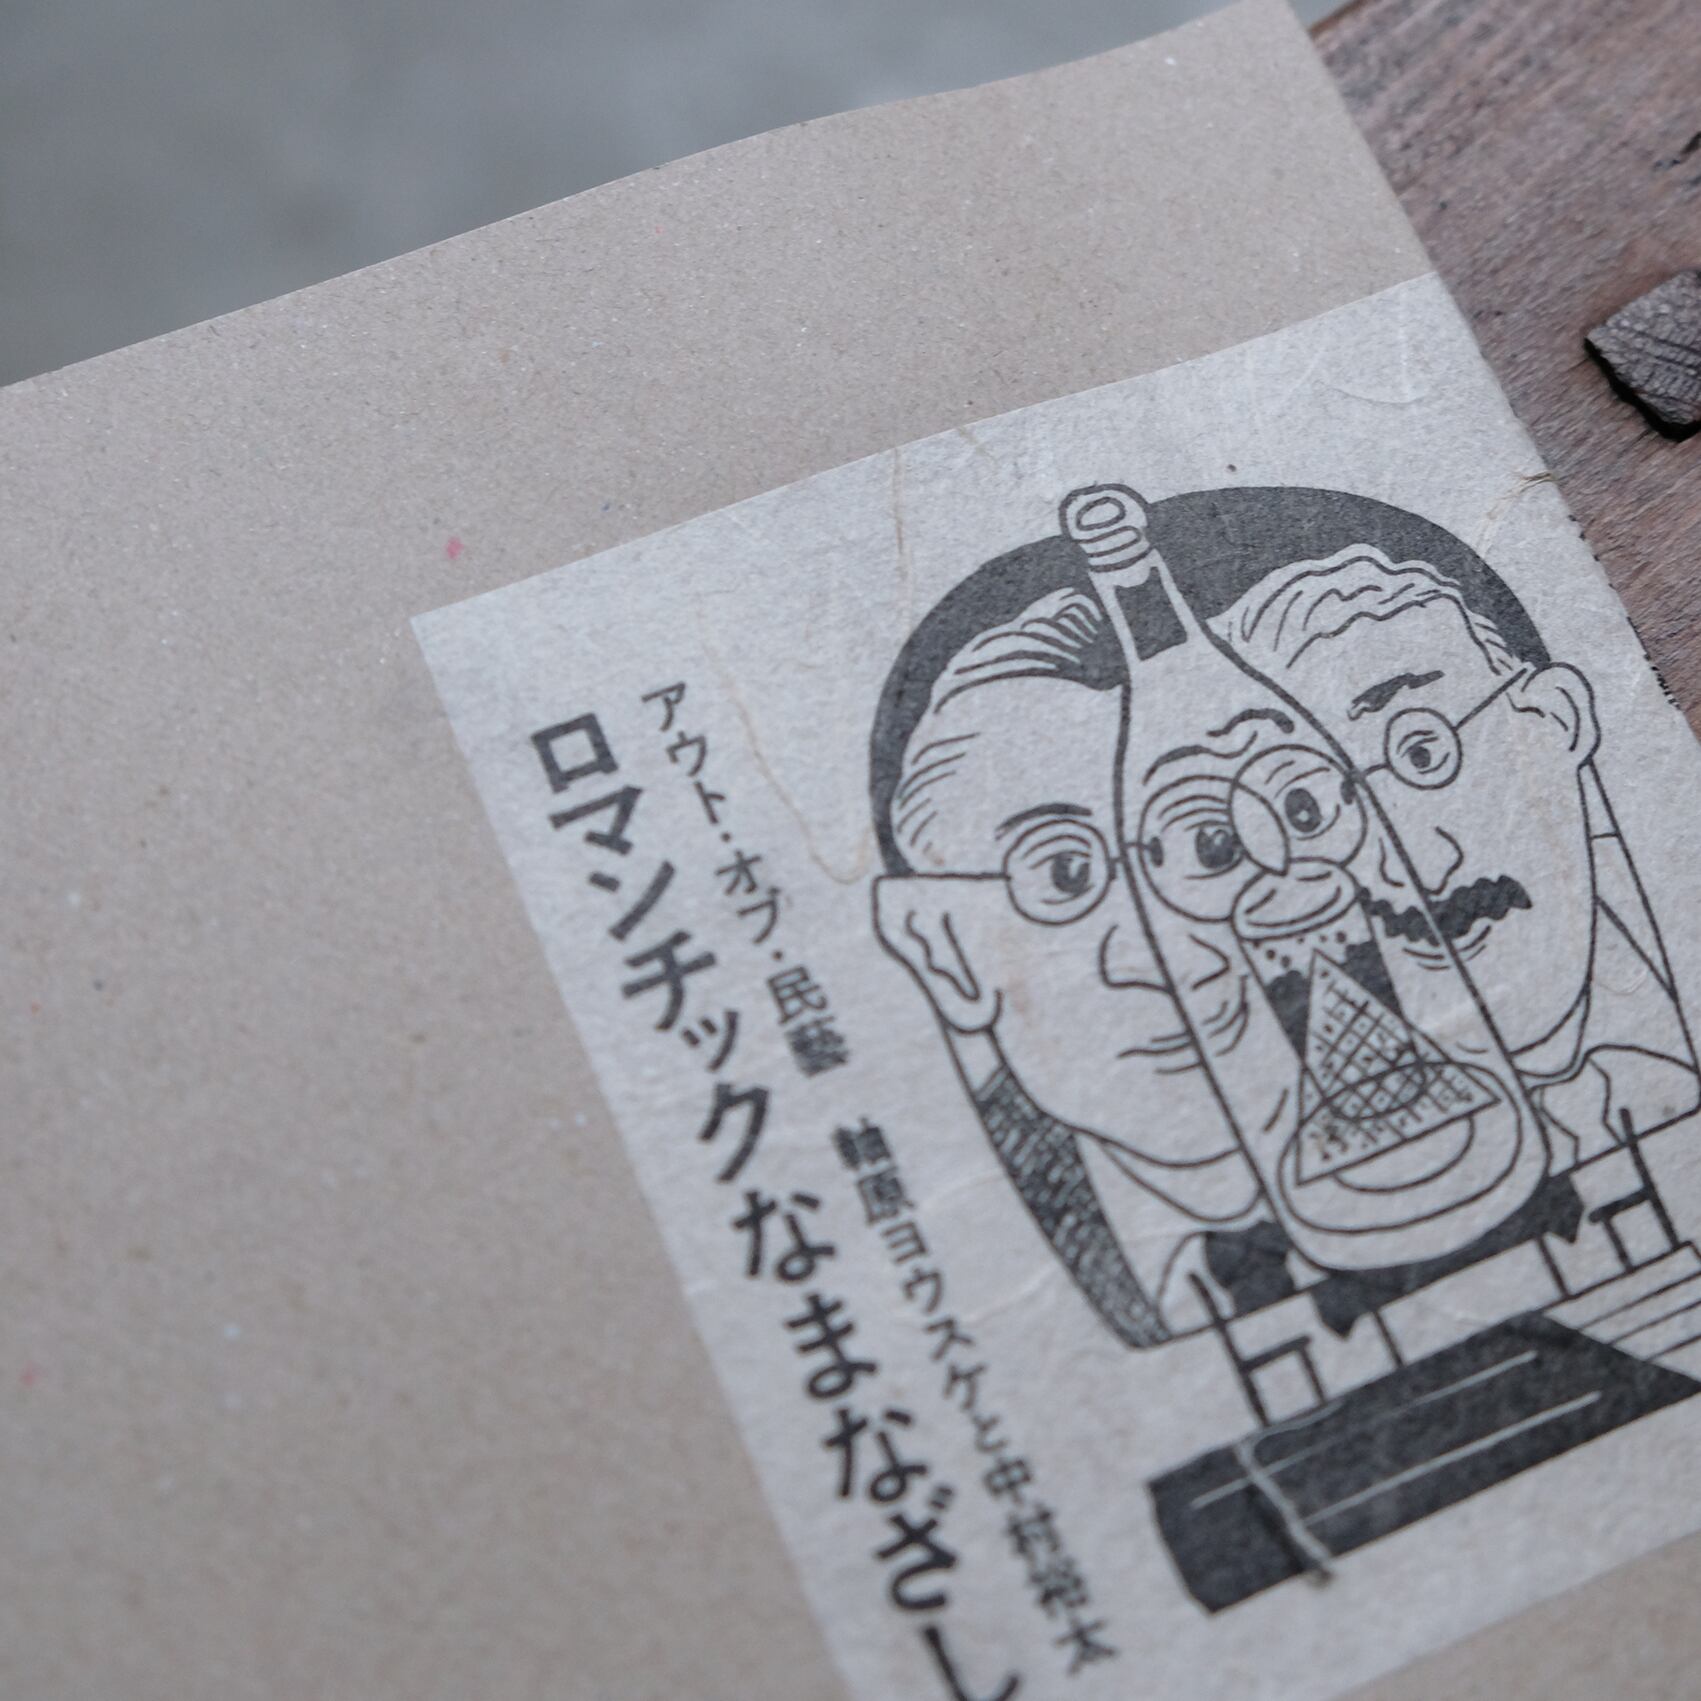 アウト・オブ・民藝 軸原ヨウスケと中村裕太
ロマンチックなまなざし